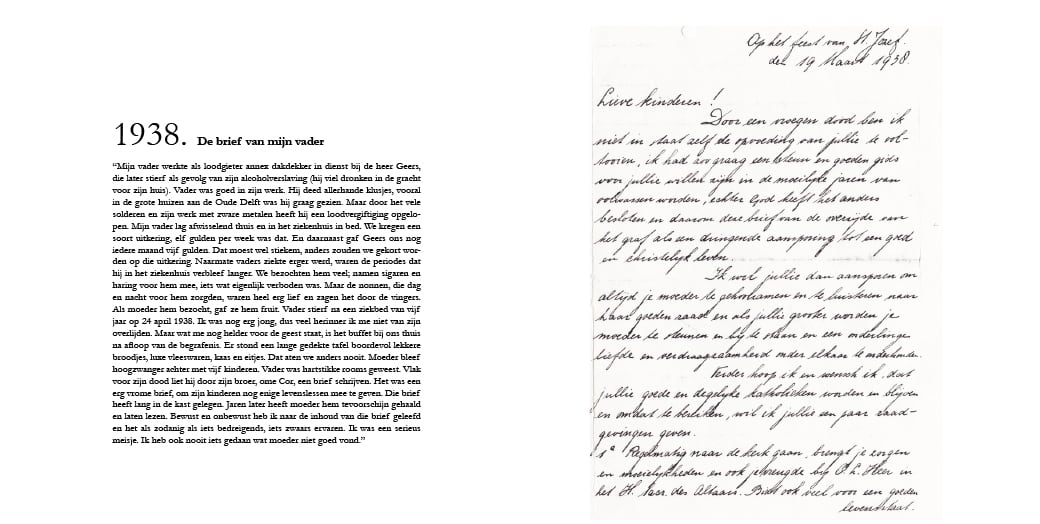 1938. De brief van mijn vader
“Mijn vader werkte als loodgieter annex dakdekker in dienst bij de heer Geers,
die later stierf als gevolg van zijn alcoholverslaving (hij viel dronken in de gracht
voor zijn huis). Vader was goed in zijn werk. Hij deed allerhande klusjes, vooral
in de grote huizen aan de Oude Delft was hij graag gezien. Maar door het vele
solderen en zijn werk met zware metalen heeft hij een loodvergiftiging opgelo-
pen. Mijn vader lag afwisselend thuis en in het ziekenhuis in bed. We kregen een
soort uitkering, elf gulden per week was dat. En daarnaast gaf Geers ons nog
iedere maand vijf gulden. Dat moest wel stiekem, anders zouden we gekort wor-
den op die uitkering. Naarmate vaders ziekte erger werd, waren de periodes dat
hij in het ziekenhuis verbleef langer. We bezochten hem veel; namen sigaren en
haring voor hem mee, iets wat eigenlijk verboden was. Maar de nonnen, die dag
en nacht voor hem zorgden, waren heel erg lief en zagen het door de vingers.
Als moeder hem bezocht, gaf ze hem fruit. Vader stierf na een ziekbed van vijf
jaar op 24 april 1938. Ik was nog erg jong, dus veel herinner ik me niet van zijn
overlijden. Maar wat me nog helder voor de geest staat, is het buffet bij ons thuis
na afloop van de begrafenis. Er stond een lange gedekte tafel boordevol lekkere
broodjes, luxe vleeswaren, kaas en eitjes. Dat aten we anders nooit. Moeder bleef
hoogzwanger achter met vijf kinderen. Vader was hartstikke rooms geweest. Vlak
voor zijn dood liet hij door zijn broer, ome Cor, een brief schrijven. Het was een
erg vrome brief, om zijn kinderen nog enige levenslessen mee te geven. Die brief
heeft lang in de kast gelegen. Jaren later heeft moeder hem tevoorschijn gehaald
en laten lezen. Bewust en onbewust heb ik naar de inhoud van die brief geleefd
en het als zodanig als iets bedreigends, iets zwaars ervaren. Ik was een serieus
meisje. Ik heb ook nooit iets gedaan wat moeder niet goed vond.”
Op het feest van St. Jozef.
del 19 Maart 1938.
Lieve kinderen !
Door een vroegen dood ben ik
niet in staat zelf de opvoeding van jullie te vol-
tooien, ik had zoo graag een steun en goeden gids
voor jullie willen zijn in de moeilijke jaren van
volwassen worden, echter God heeft het anders
besloten en daarom deze brief van de overzijde van
het graf als een dringende aansporing tot een goed
en christelijk leven.
Ik wil jullie dan aansporen om
altijd je moeder te gehoorzamen en te luisteren naar
haar goeden raad en als jullie grooter worden je
moeder te steunen en bij te staan en een onderlinge
liefde en verdraagzaamheid onder elkaar te onderhouden.
Verder hoop ik en wensch ik, dat
jullie goede en degelijke katholieken worden en blijven
en om dat te bereiken, wil ik jullie een paar raad-
gevingen geven.
1e Regelmatig naar de kerk gaan, brengt je zorgen
en moeielijkheden en ook je vreugde bij O. L. Heer in
het H. Sacr. des Altaars. Bidt ook veel voor een goeden
levensstaat.